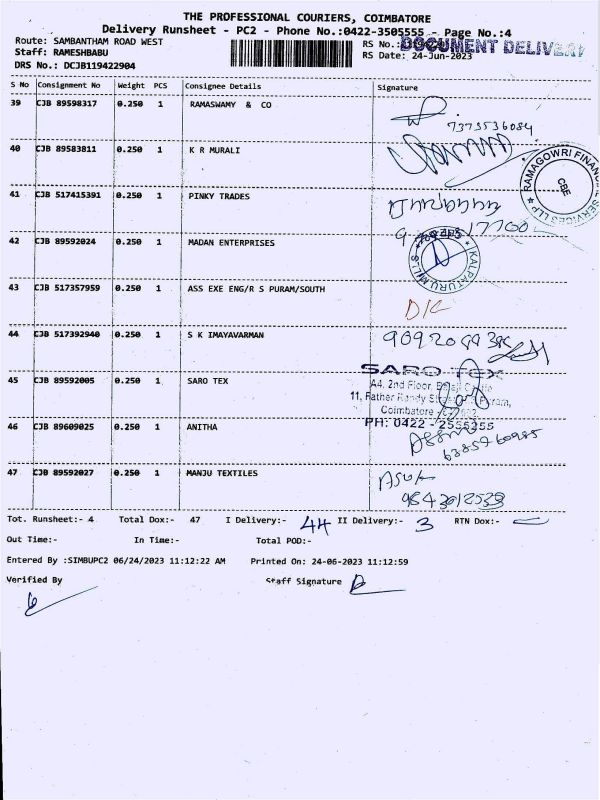 THE PROFESSIONAL COURIERS, COIMBATORE
Delivery Runsheet - PC2 - Phone No.:0422-3505555 - Page No.:4
Route: SAMBANTHAM ROAD WEST
RS No.:
DOCUMENT DELIVERY
Staff: RAMESHBABU
RS Date: 24-Jun-2023
DRS No.: DCJB119422904
S No Consignment No Weight PCS Consignee Details Signature
39 CJB 89598317 0.250 1 RAMASWAMY & CO
7373536084
40 CJB 89583811 0.250 1 K R MURALI
RAMAGOWRI FINANCIAL SERVICES LLP
CBE
41 CJB 517415391 0.250 1 PINKY TRADES
42 CJB 89592024 0.250 1 MADAN ENTERPRISES
KALPATURU MILLS
43 CJB 517357959 0.250 1 ASS EXE ENG/R S PURAM/SOUTH
44 CJB 517392940 0.250 1 S K IMAYAVARMAN
45 CJB 89592005 0.250 1 SARO TEX
SARO TEX
A4, 2nd Floor,
11, Father Randy Puram,
Coimbatore
PH: 0422 - 2555255
46 CJB 89609025 0.250 1 ANITHA
6385260985
47 CJB 89592027 0.250 1 MANJU TEXTILES
9843012538
Tot. Runsheet:- 4 Total Dox:- 47 I Delivery:- 44 II Delivery:- 3 RTN Dox:-
Out Time:- In Time:- Total POD:-
Entered By :SIMBUPC2 06/24/2023 11:12:22 AM Printed On: 24-06-2023 11:12:59
Verified By Staff Signature